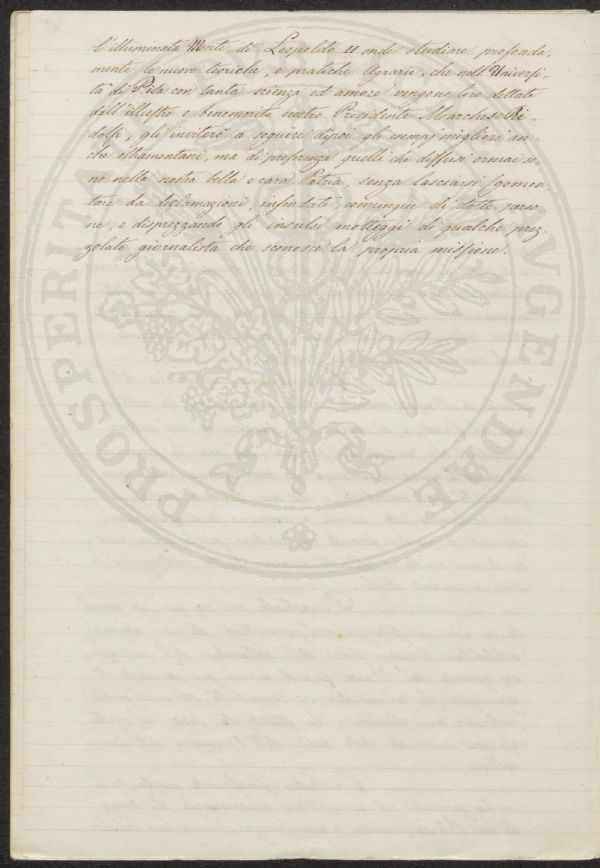 l'illuminata Mente di Leopoldo II onde studiare profonda-
mente le nuove teoriche, e pratiche Agrarie, che nell'Universi-
tà di Pisa con tanta scienza ed amore vengono loro dettate
dall'illustre e benemerito nostro Presidente Marchese Ri-
dolfi, gli inviterò a seguire dipoi gli esempj migliori an-
che oltramontani, ma di preferenza quelli che diffusi ormai so-
no nella nostra bella e cara Patria, senza lasciarsi sgomen-
tare da declamazioni, infondate, comunque di dotte perso-
ne, e disprezzando gli insulsi motteggi di qualche prez-
zolato giornalista che sconosce la propria missione.
PROSPERITATI AVGENDAE